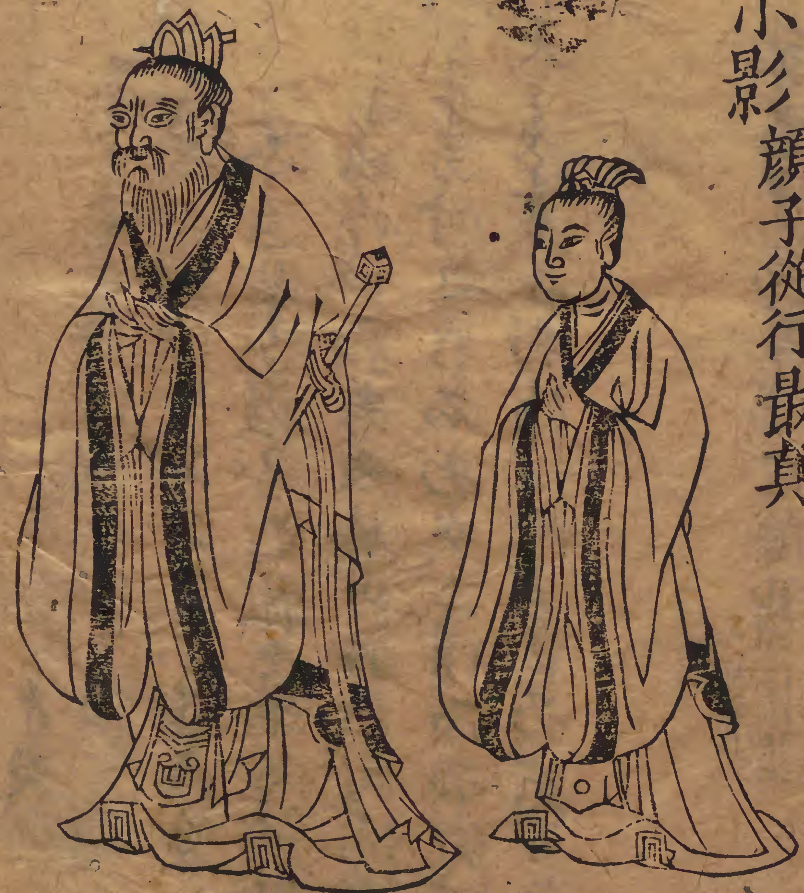 小影顏子從行最真